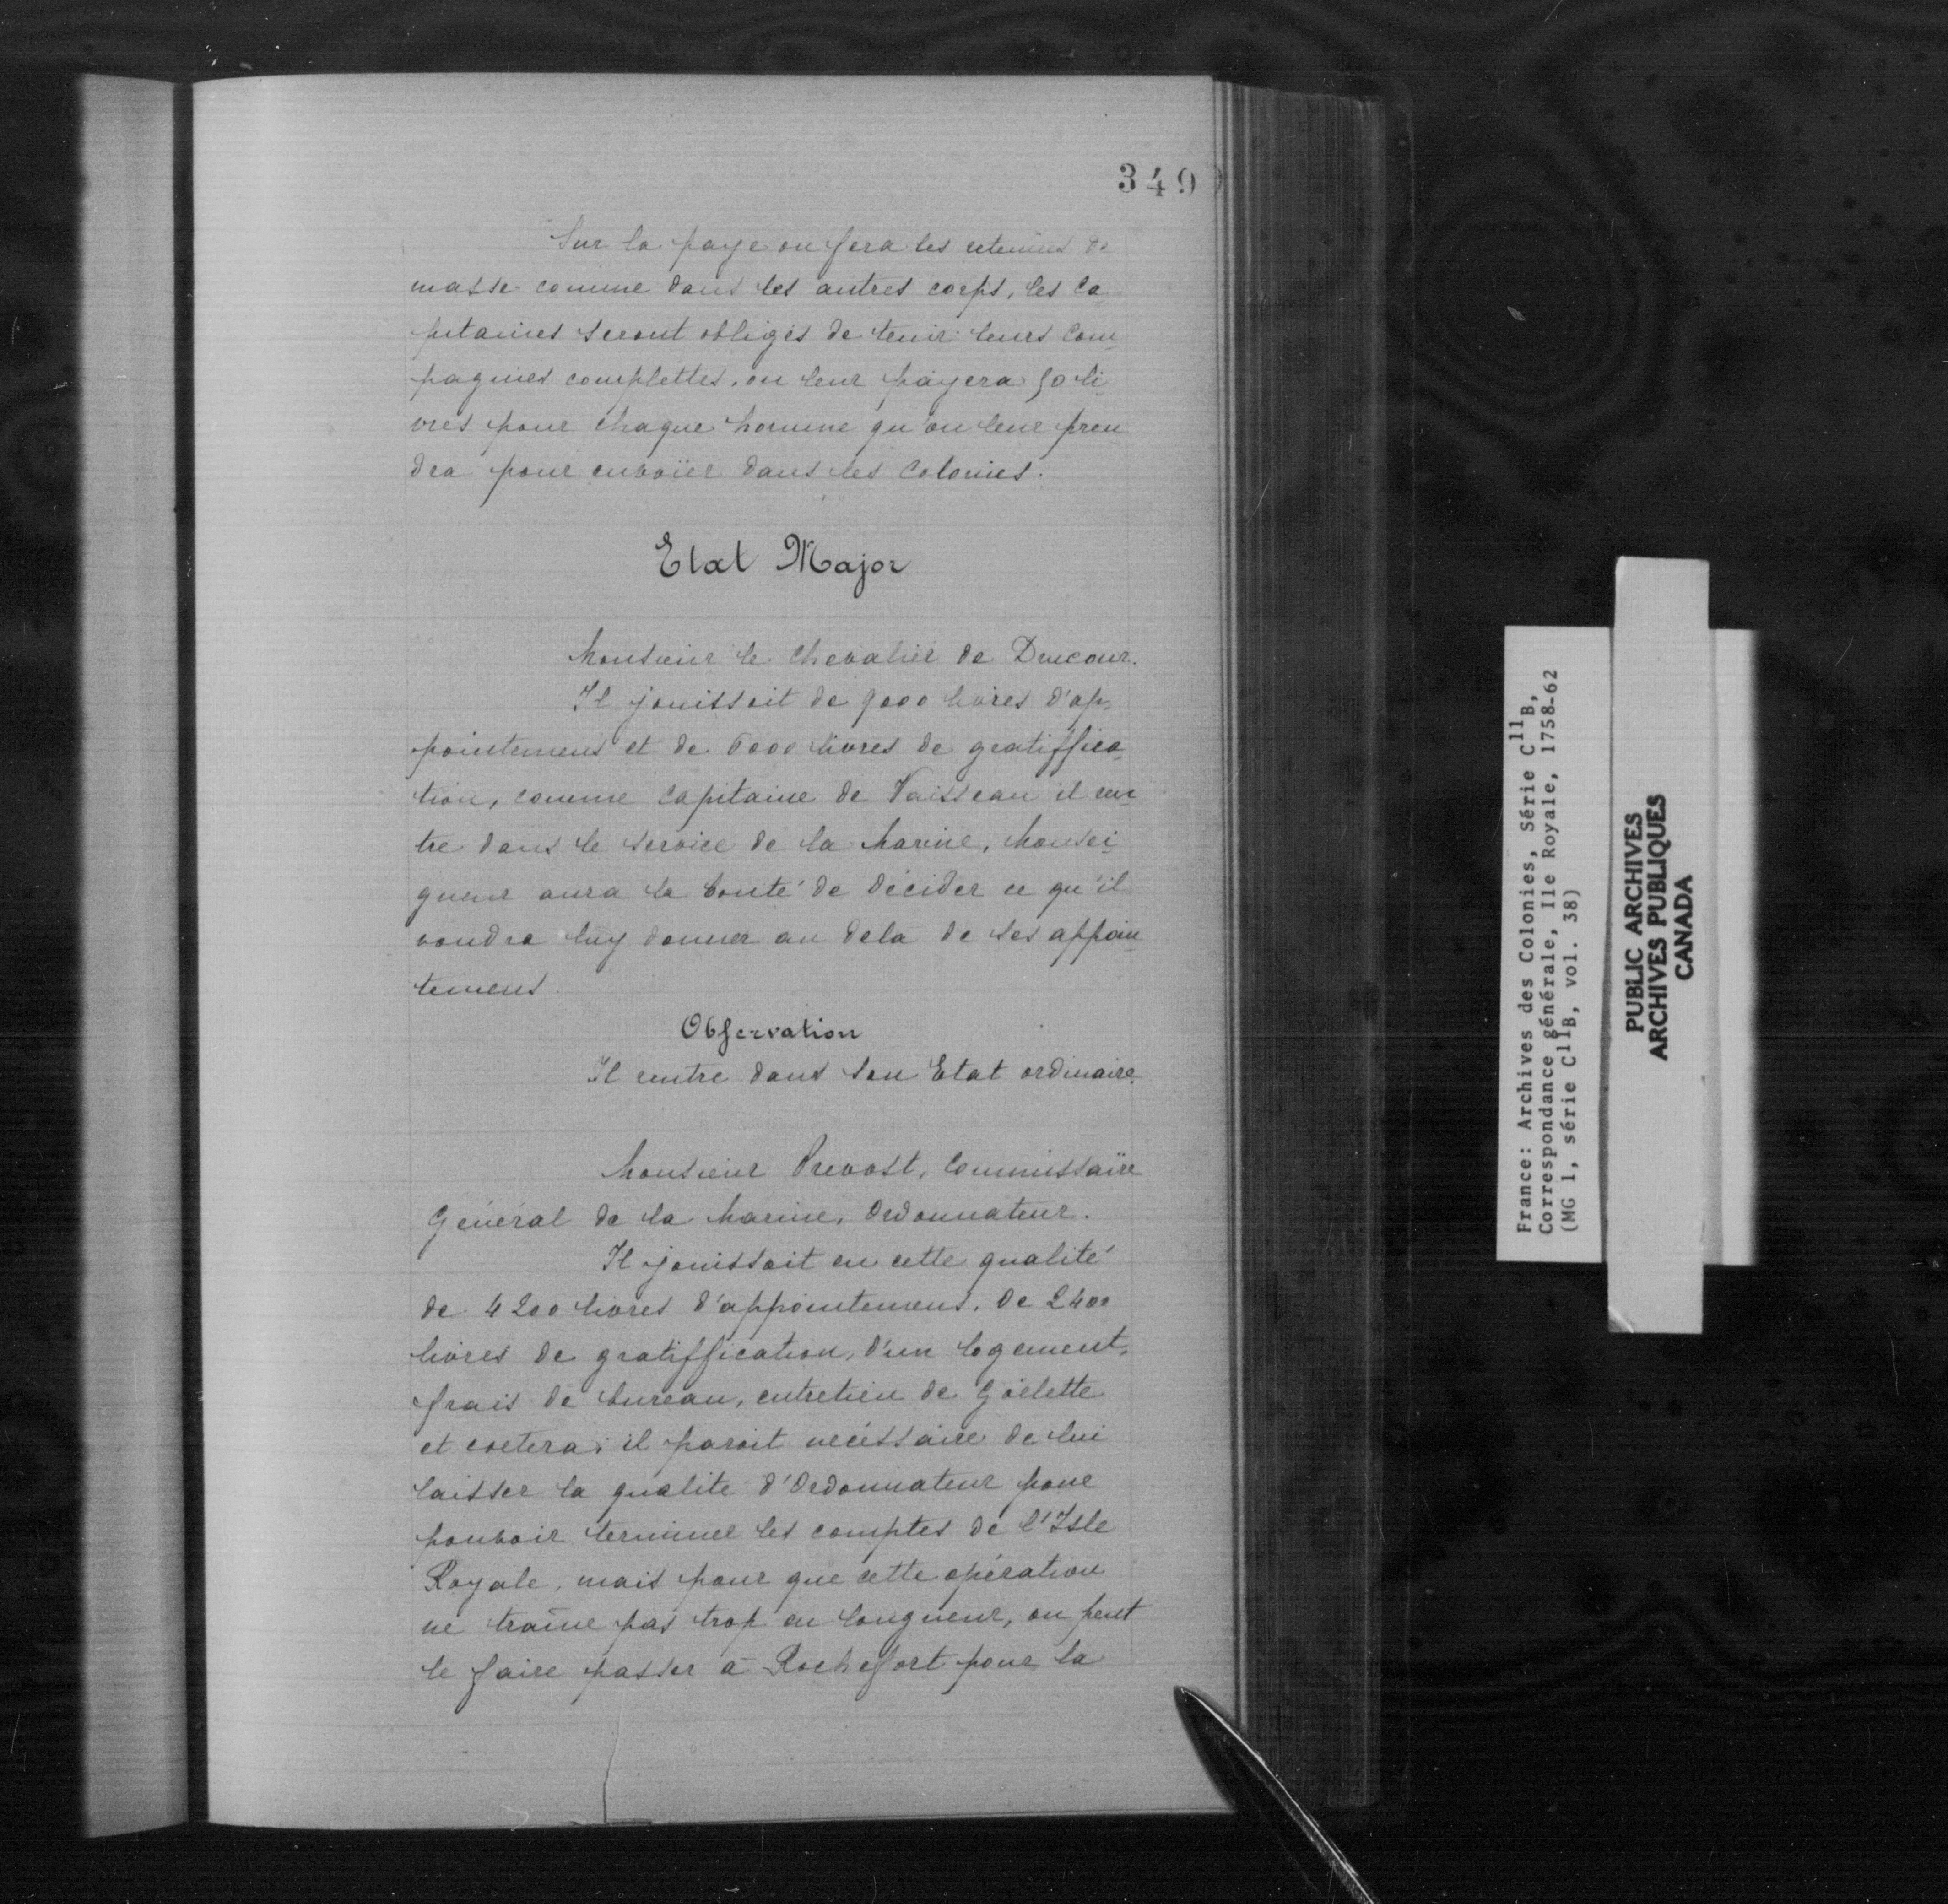 349
Sur la paye on fera les retenues de
masse comme dans les autres corps, les ca-
pitaines seront obligés de tenir leurs Com-
pagnies complettes, on leur payera 50 li-
vres pour chaque homme qu'on leur pren
dra pour envoïer dans les Colonies.
Etat Major
Monsieur le Chevalier de Drucour.
Il jouissoit de 9000 livres d'ap-
pointemens et de 6000 livres de gratiffica-
tion, comme Capitaine de Vaisseau il en-
tre dans le Service de la Marine, Monsei-
gneur aura la bonté de décider ce qu'il
voudra luy donner au dela de ses appoin-
temens
Observation
Il rentre dans son Etat ordinaire.
Monsieur Prevost, Commissaire
Général de la Marine, Ordonnateur.
Il jouissoit en cette qualité
de 4200 livres d'appointemens, de 2400
livres de gratiffication, d'un logement,
frais de bureau, entretien de Goëlette
et coetera; il paroit nécéssaire de lui
laisser la qualite d'Ordonnateur pour
pouvoir terminer les comptes de l'Isle
Royale, mais pour que cette opération
ne traîne pas trop en longueur, on peut
le faire passer à Rochefort pour la
France: Archives des Colonies, Série C11B,
Correspondance générale, Ile Royale, 1758-62
(MG 1, série C11B, vol. 38)
PUBLIC ARCHIVES
ARCHIVES PUBLIQUES
CANADA